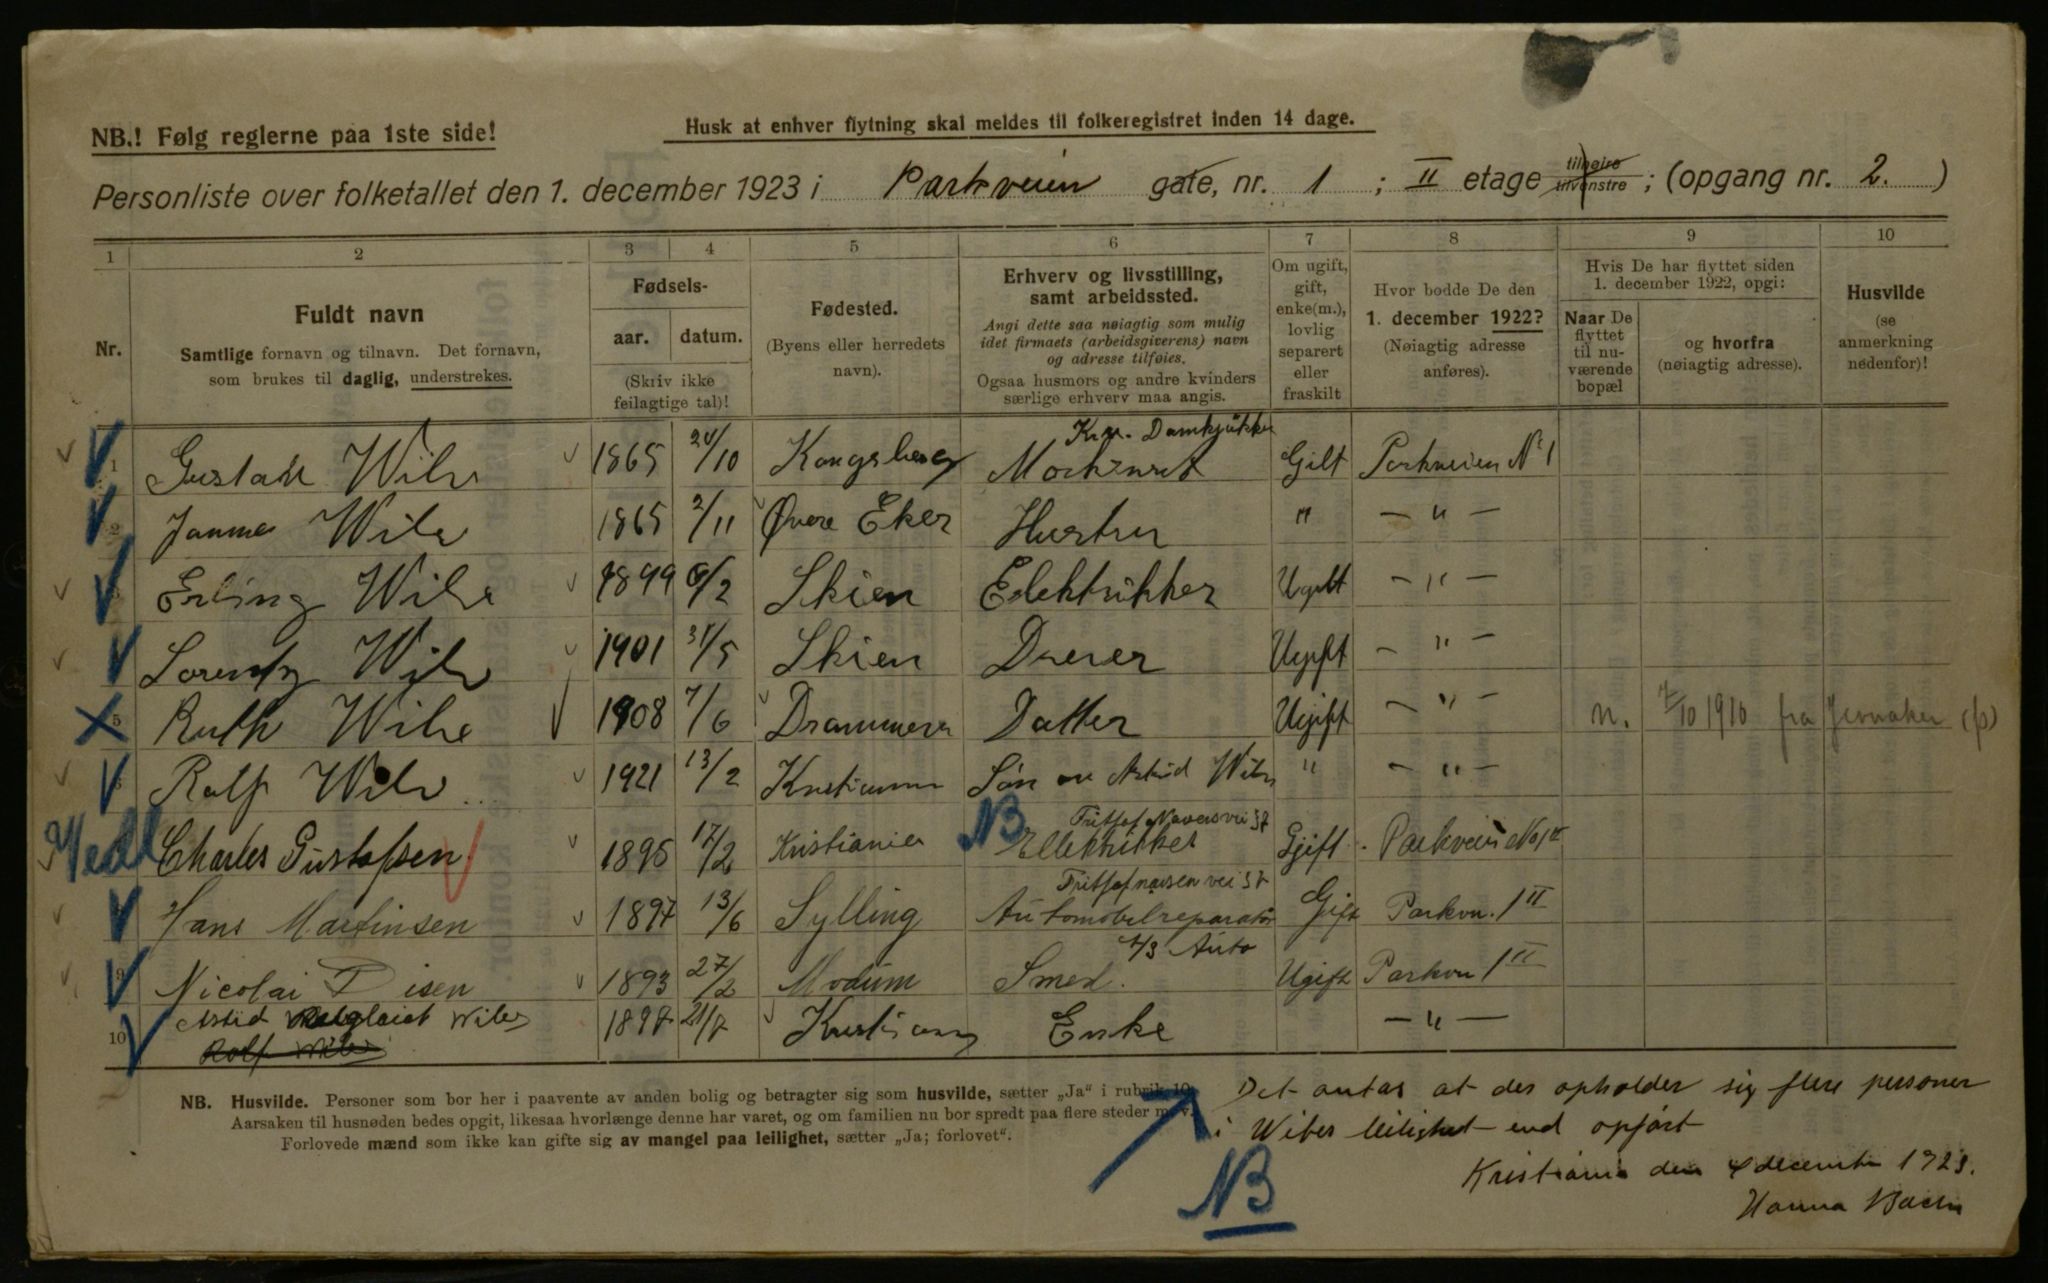 NB.! Følg reglerne paa 1ste side!
Husk at enhver flytning skal meldes til folkeregistret inden 14 dage.
Personliste over folketallet den 1. december 1923 i Parkveien gate, nr. 1 ; II etage tilhøire tilvenstre ; (opgang nr. 2. )
1 2 3 4 5 6 7 8 9 10
Nr.
Fuldt navn
Samtlige fornavn og tilnavn. Det fornavn, som brukes til daglig, understrekes.
Fødsels-
aar. datum.
(Skriv ikke feilagtige tal)!
Fødested.
(Byens eller herredets navn).
Erhverv og livsstilling, samt arbeidssted.
Angi dette saa nøiagtig som mulig idet firmaets (arbeidsgiverens) navn og adresse tilføies.
Ogsaa husmors og andre kvinders særlige erhverv maa angis.
Om ugift, gift, enke(m.), lovlig separert eller fraskilt
Hvor bodde De den 1. december 1922?
(Nøiagtig adresse anføres).
Hvis De har flyttet siden 1. december 1922, opgi:
Naar De flyttet til nuværende bopæl
og hvorfra (nøiagtig adresse).
Husvilde
(se anmerkning nedenfor)!
Kra. Damkjøkken
1 Gustav Wibe 1865 24/10 Kongsberg Gift Parkveien No 1
2 Wibe 1865 2/11 Øvre Eker Hustru " — " —
3 Erling Wibe 1899 6/2 Skien Elektrikker Ugift — " —
Lorentz Wibe 1901 31/5 Skien Dreier Ugift — " —
5 Ruth Wibe 1908 7/6 Drammen Datter Ugift — " — n. 7/10 1910 fra Jevnaker (p)
Rolf Wibe 1921 13/2 Kristiania Søn av Astrid Wibe " — " —
NB
Charles Gustafsen 1895 17/2 Kristiania Ellektrikker Gjift Parkveien No 1 II
Hans Martinsen 1897 13/6 Sylling Automobilreparatør Gift Parkvn. 1 II
A/S Auto
9 Nicolai Disen 1893 27/2 Modum Smed. Ugift Parkvn 1 II
10 Astrid Wibe 1897 21/7 Kristiania Enke — " —
Rolf Wibe
NB. Husvilde. Personer som bor her i paavente av anden bolig og betragter sig som husvilde, sætter „Ja“ i rubrik 10.
Aarsaken til husnøden bedes opgit, likesaa hvorlænge denne har varet, og om familien nu bor spredt paa flere steder m. v.
Forlovede mænd som ikke kan gifte sig av mangel paa leilighet, sætter „Ja; forlovet“.
Det antas at der opholder sig flere personer
i Wibes leilighet end opført
NB
Kristiania den 4 december 1923.
Hanna